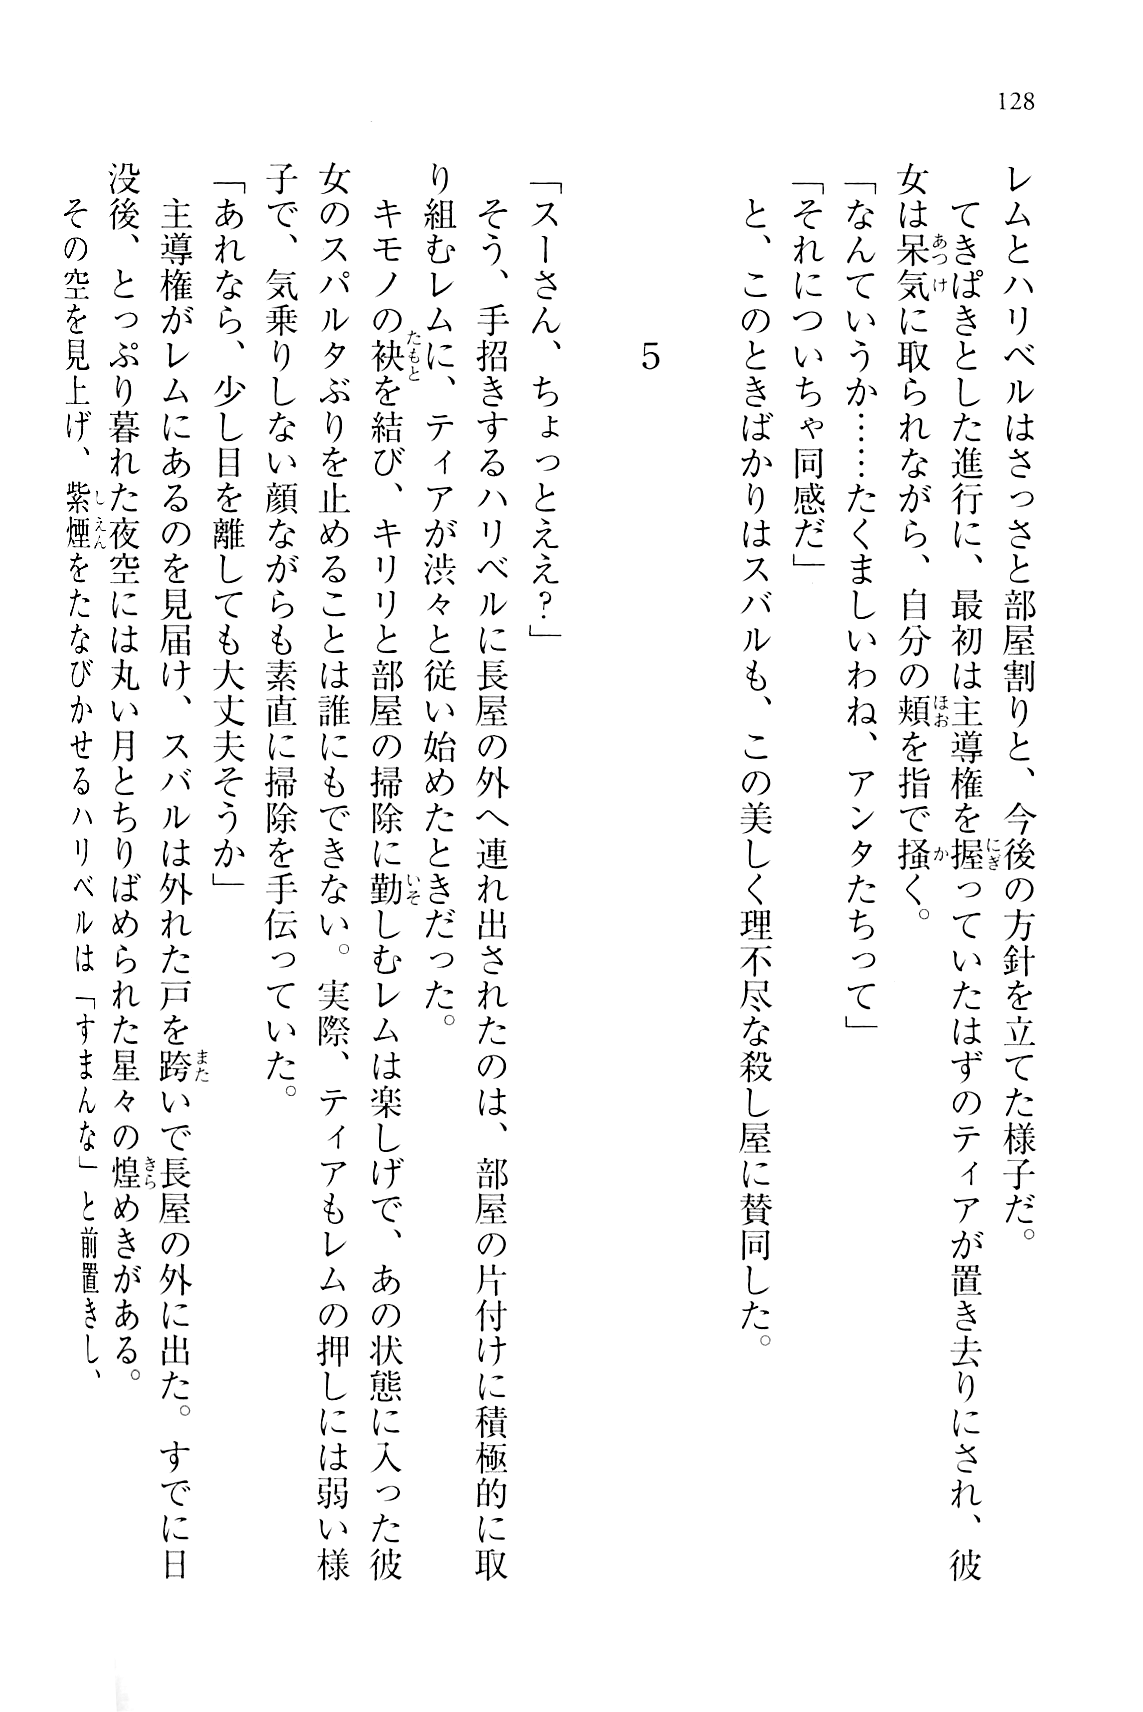 128
レムとハリベルはさっさと部屋割りと、今後の方針を立てた様子だ。
てきぱきとした進行に、最初は主導権を握っていたはずのティアが置き去りにされ、彼
女は呆気に取られながら、自分の頬を指で掻く。
「なんていうか……たくましいわね、アンタたちって」
「それについちゃ同感だ」
と、このときばかりはスバルも、この美しく理不尽な殺し屋に賛同した。
5
「スーさん、ちょっとええ?」
そう、手招きするハリベルに長屋の外へ連れ出されたのは、部屋の片付けに積極的に取
り組むレムに、ティアが渋々と従い始めたときだった。
キモノの袂を結び、キリリと部屋の掃除に勤しむレムは楽しげで、あの状態に入った彼
女のスパルタぶりを止めることは誰にもできない。実際、ティアもレムの押しには弱い様
子で、気乗りしない顔ながらも素直に掃除を手伝っていた。
「あれなら、少し目を離しても大丈夫そうか」
主導権がレムにあるのを見届け、スバルは外れた戸を跨いで長屋の外に出た。すでに日
没後、とっぷり暮れた夜空には丸い月とちりばめられた星々の煌めきがある。
その空を見上げ、紫煙をたなびかせるハリベルは「すまんな」と前置きし、